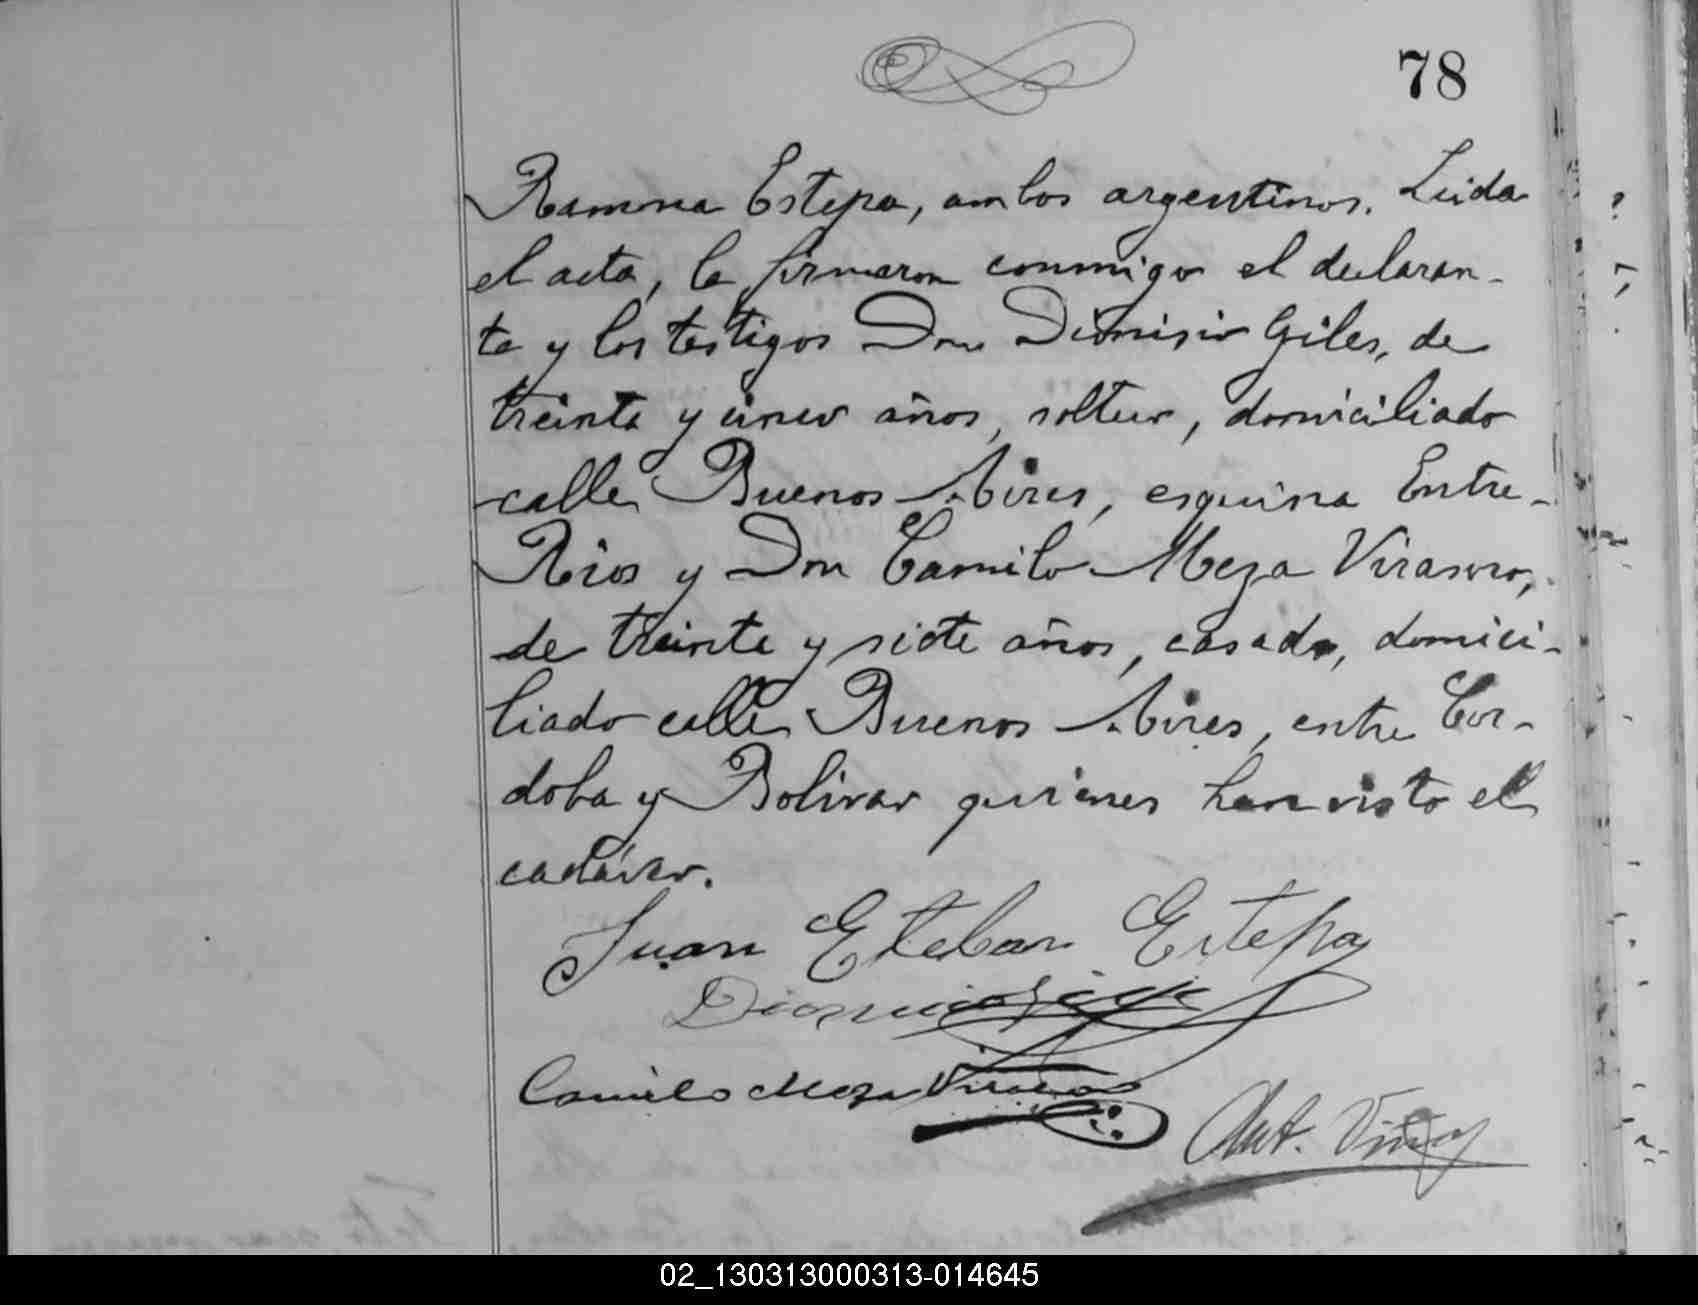 78
Ramona Estepa, ambos argentinos. Leida
el acta, la firmaron conmigo el declaran-
te y los testigos Don Dionisio Giles, de
treinta y cinco años, soltero, domiciliado
calle Buenos Aires, esquina Entre-
Rios y Don Camilo Meza Virasoro,
de treinta y siete años, casado, domici-
liado calle Buenos Aires, entre Cor-
doba y Bolivar quienes han visto el
cadáver.
Juan Esteban Estepa
Dionicio Giles
Camilo Meza Virasoro
Ant.
02_130313000313-014645